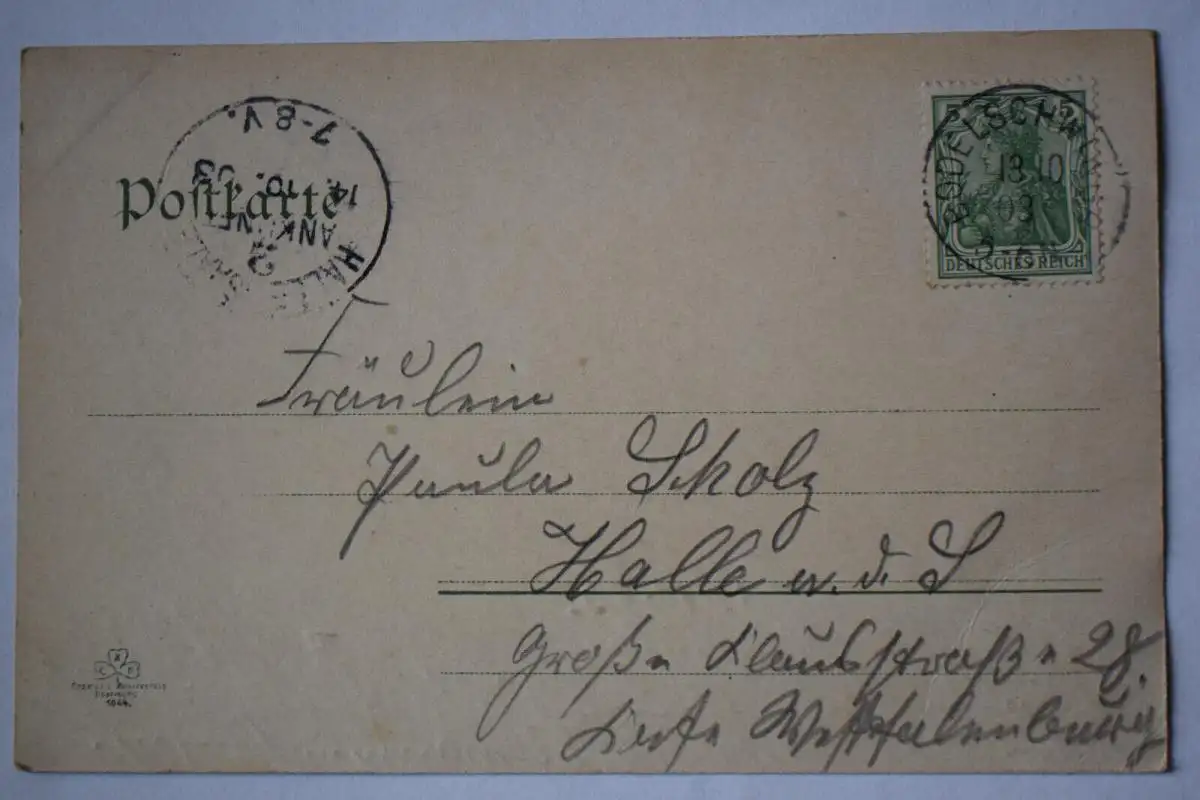 Postkarte
HALLE
2
ANK
14. 10. 03
7-8 V.
5 5
DEUTSCHES REICH
BODELSCHW
13.10
03
Fräulein
Paula Skolz
Halle a. d. S
Große Klausstraße 28.
Westfalenburg
1044.